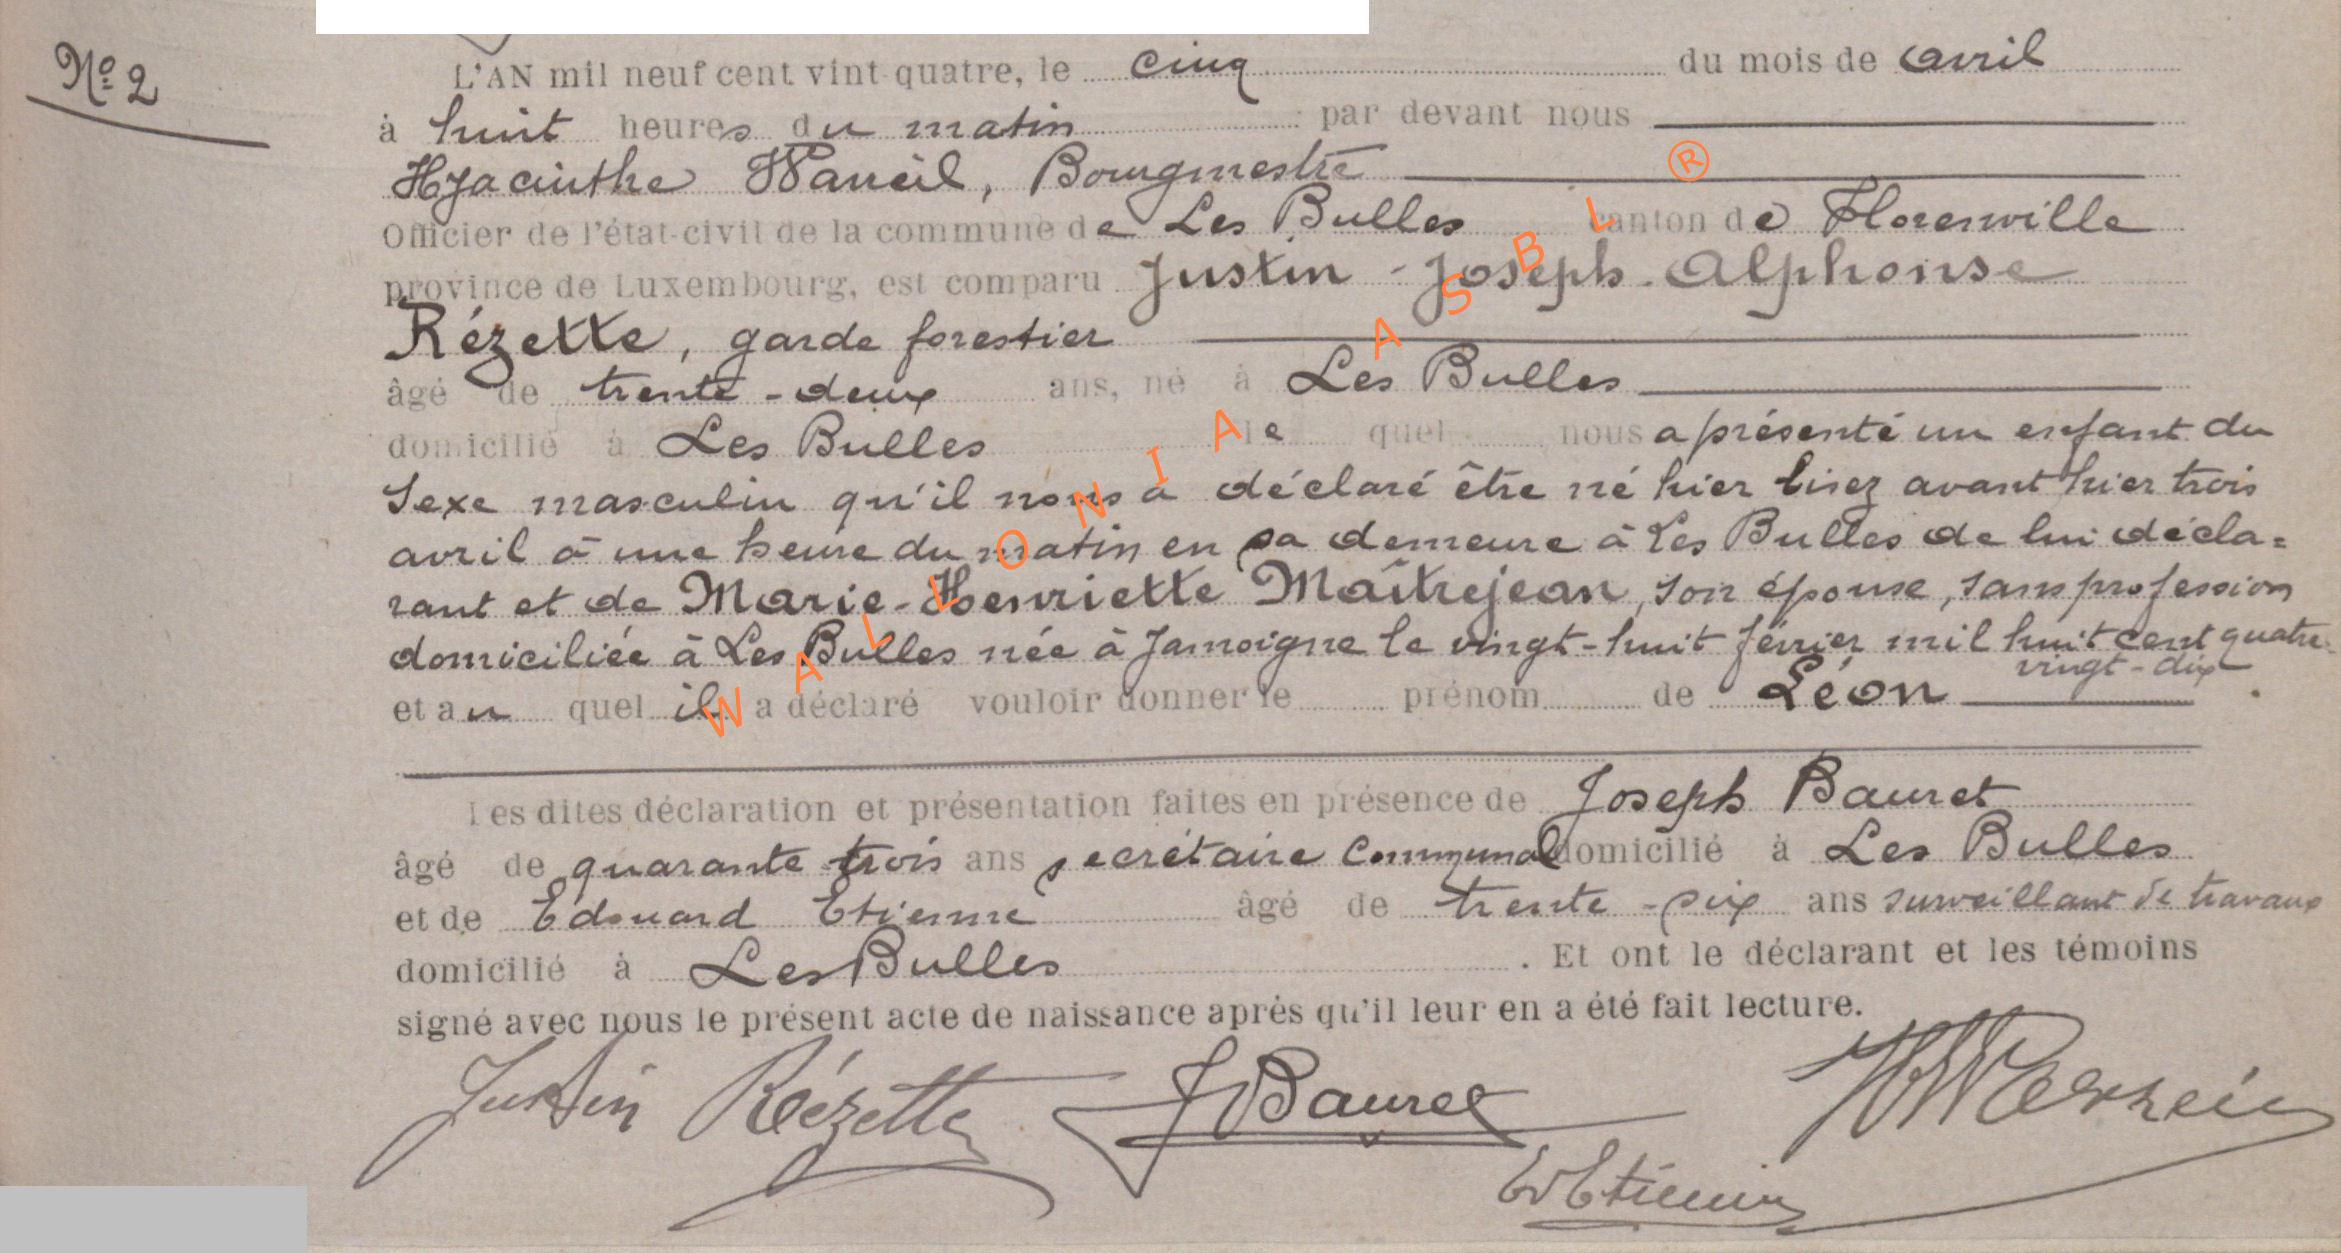 Nº 2
L'AN mil neuf cent vint quatre, le cinq du mois de avril
à huit heures du matin par devant nous
Hyacinthe Waneil, Bourgmestre
Officier de l'état-civil de la commune de Les Bulles canton de Florenville
province de Luxembourg, est comparu Justin - Joseph - Alphonse
Rézette, garde forestier
âgé de trente-deux ans, né à Les Bulles
domicilié à Les Bulles le quel nous a présenté un enfant du
sexe masculin qu'il nous a déclaré être né hier lisez avant hier trois
avril à une heure du matin en sa demeure à Les Bulles de lui décla=
rant et de Marie-Henriette Maîtrejean, son épouse, sans profession
domiciliée à Les Bulles née à Jamoigne le vingt-huit février mil huit cent quatre-
vingt-dix
et au quel il a déclaré vouloir donner le prénom de Léon
Les dites déclaration et présentation faites en présence de Joseph Bauret
âgé de quarante-trois ans secrétaire communal domicilié à Les Bulles
et de Edouard Etienne âgé de trente-six ans surveillant de travaux
domicilié à Les Bulles. Et ont le déclarant et les témoins
signé avec nous le présent acte de naissance aprés qu'il leur en a été fait lecture.
Justin Rézette J Bauret
Ed Etienne
WALLONIA ASBL ®